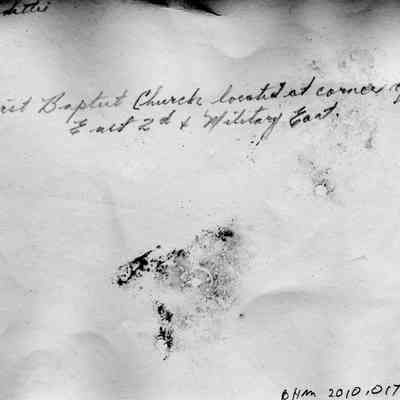 Baptist Church located at corner
East 2d & Military East.
BHM 2010.017